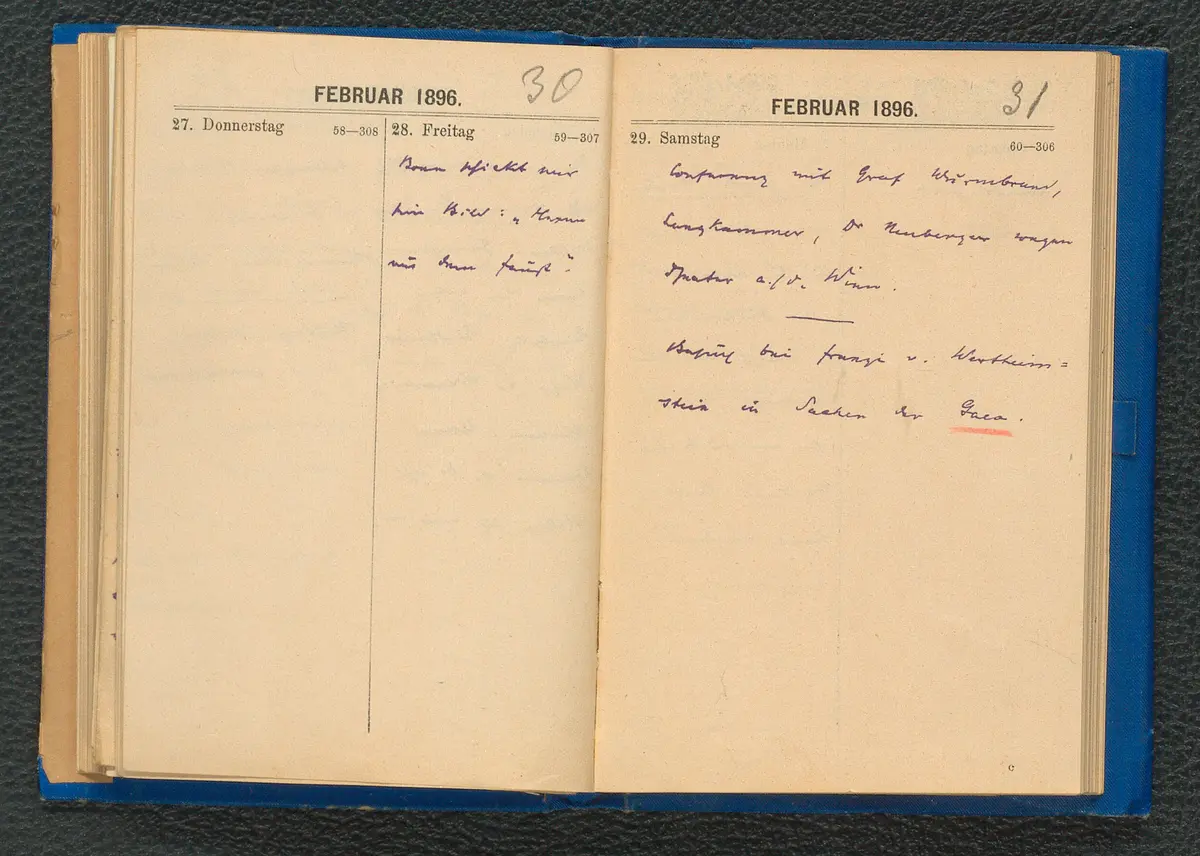 30
FEBRUAR 1896.
27. Donnerstag 58—308
28. Freitag 59—307
schickt mir
sein Bild: „
aus dem Faust“.
31
FEBRUAR 1896.
29. Samstag 60—306
Conferenz mit Graf Wurmbrand,
Langkammer, Dr Neuberger wegen
Theater a./d. Wien.
Besuch bei Franzi v. Wertheim=
stein in Sachen der Gaea.
c